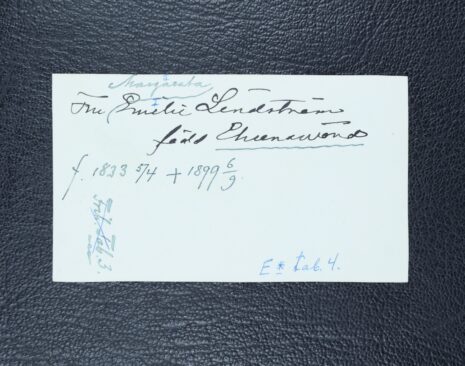 Margareta
Fru Emilie Lindström
född Ehrenswärd
f. 1833 5/4 + 1899 6/9.
Tab. 3.
E * tab. 4.